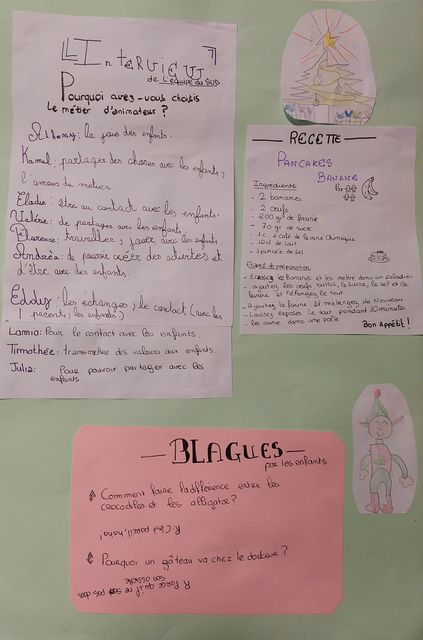 Interview
de l'équipe du SUD
Pourquoi avez-vous choisis
le métier d'animateur ?
Anthony: la joie des enfants.
Kamel: partager des choses avec les enfants,
l'amour du métier.
Eladu: être au contact avec les enfants.
Valérie: de partager avec les enfants.
Florence: travailler, jouer avec les enfants.
Andréa: de pouvoir créer des activités et
d'être avec des enfants.
Eddy: les échanges, le contact (avec les
parents, les enfants)
Lamia: Pour le contact avec les enfants.
Timothée: transmettre des valeurs aux enfants
Julia: Pour pouvoir partager avec les
enfants.
— RECETTE —
PANCAKES
BANANE
Ingrédients
- 2 bananes
- 2 oeufs
- 200 gr de farine
- 70 gr de sucre
- 1 c. à café de levure chimique
- 10 cl de lait
- 1 pincée de sel
Etapes de préparation
- Ecrasez les Bananes et les mettre dans un saladier
- ajoutez les oeufs battus, le sucre, le sel et la
levure et mélangez le tout
- Ajoutez la farine et mélangez de nouveau
- Laissez reposer le tout pendant 10 minutes
- les cuire dans une poêle
Bon Appétit !
— BLAGUES —
par les enfants
Comment faire la différence entre les
crocodiles et les alligator ?
R: C'est pareil, haha!
Pourquoi un gâteau va chez le docteur ?
R: Parce qu'il ne sent pas dans
son assiette.